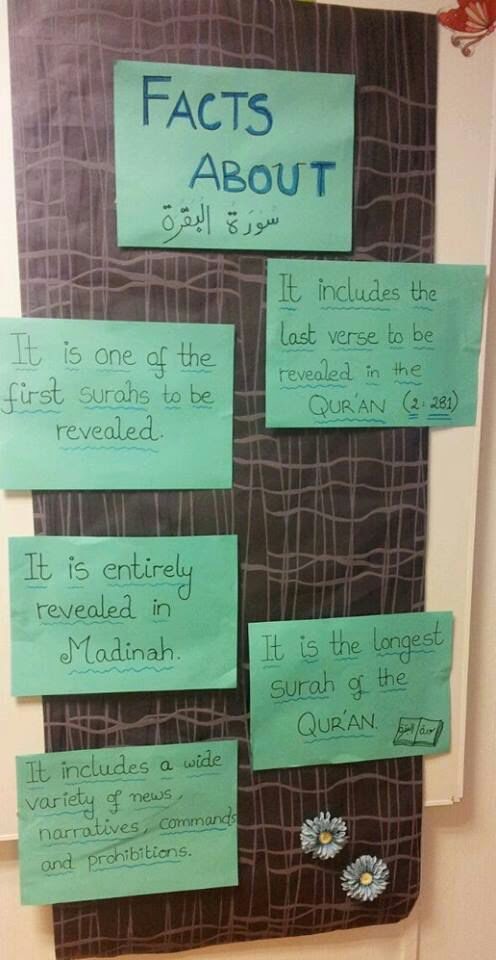 FACTS
ABOUT
سُورَةُ البَقَرَة
It includes the
last verse to be
revealed in the
QUR'AN (2:281)
It is one of the
first surahs to be
revealed.
It is entirely
revealed in
Madinah.
It is the longest
surah of the
QUR'AN.
It includes a wide
variety of news,
narratives, commands
and prohibitions.